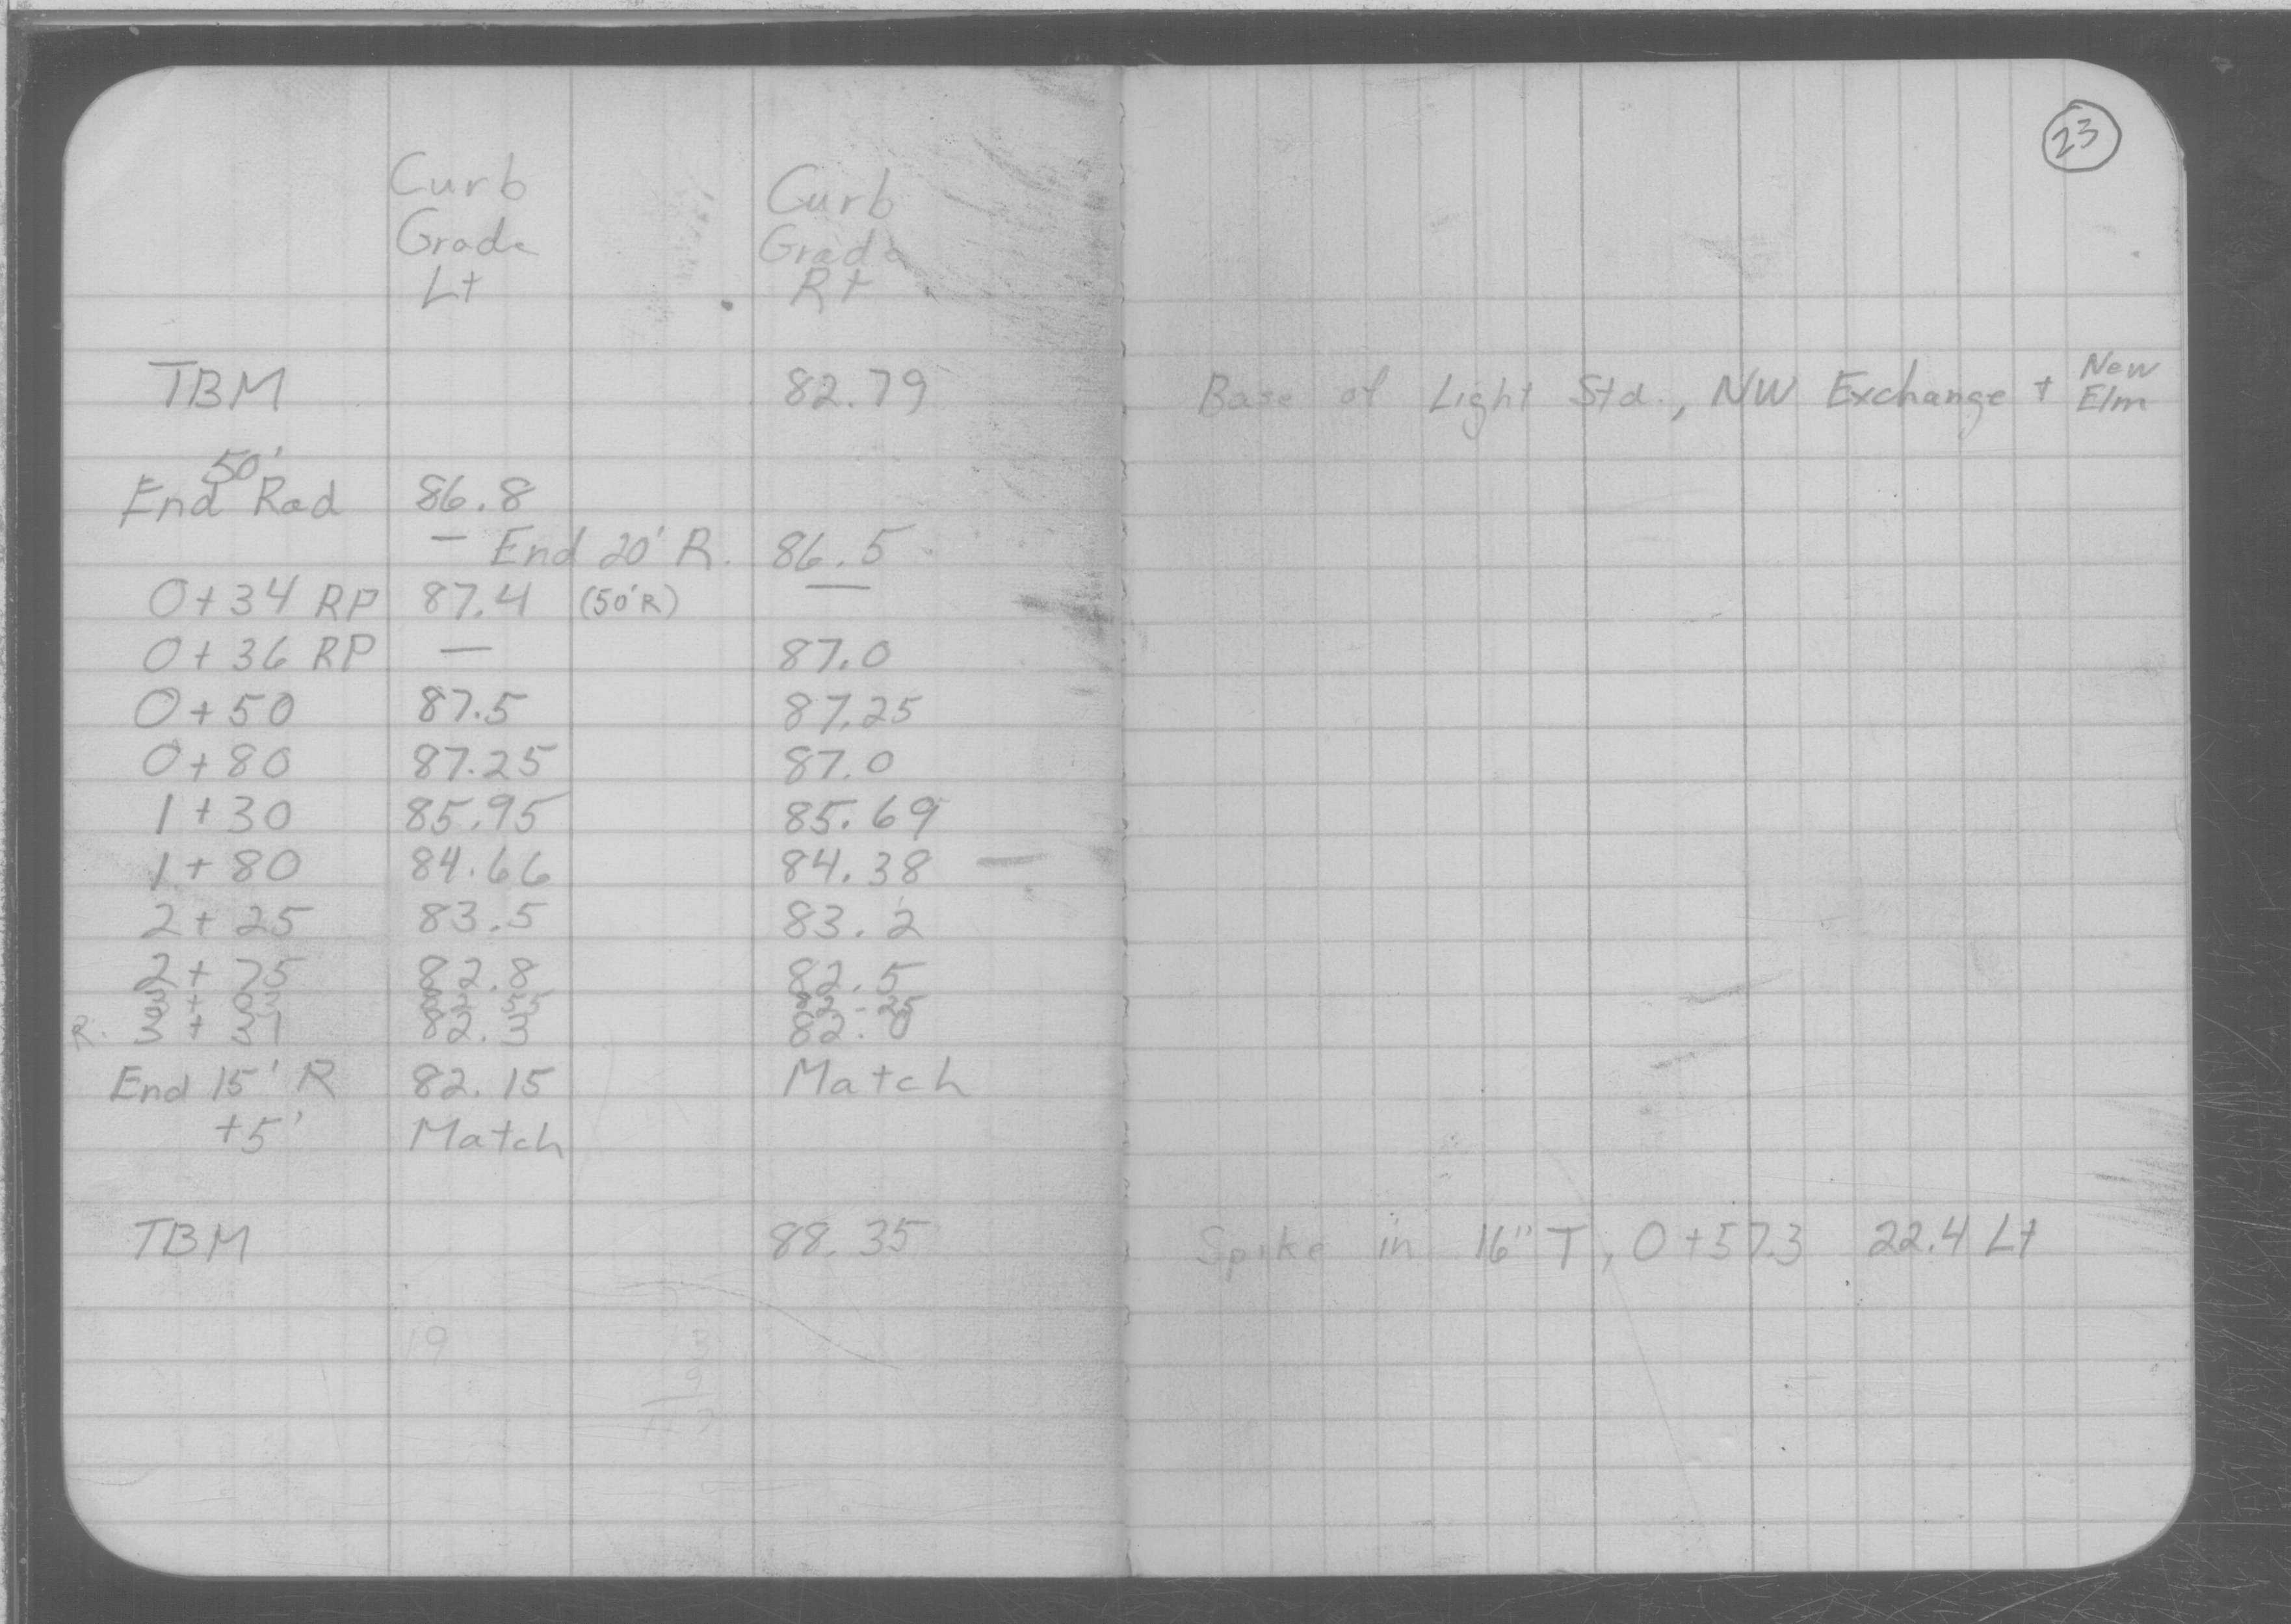 23
Curb Curb
Grade Grade
Lt Rt
TBM 82.79 Base of Light Std., NW Exchange + New Elm
50'
End Rad 86.8
— End 20' R. 86.5
0+34 RP 87.4 (50'R) —
0+36 RP — 87.0
0+50 87.5 87.25
0+80 87.25 87.0
1+30 85.95 85.69
1+80 84.66 84.38
2+25 83.5 83.2
2+75 82.8 82.5
3+03 82.55 82.25
R. 3+31 82.3 82.0
End 15' R 82.15 Match
+5' Match
TBM 88.35 Spike in 16" T, 0+57.3 22.4 Lt
19